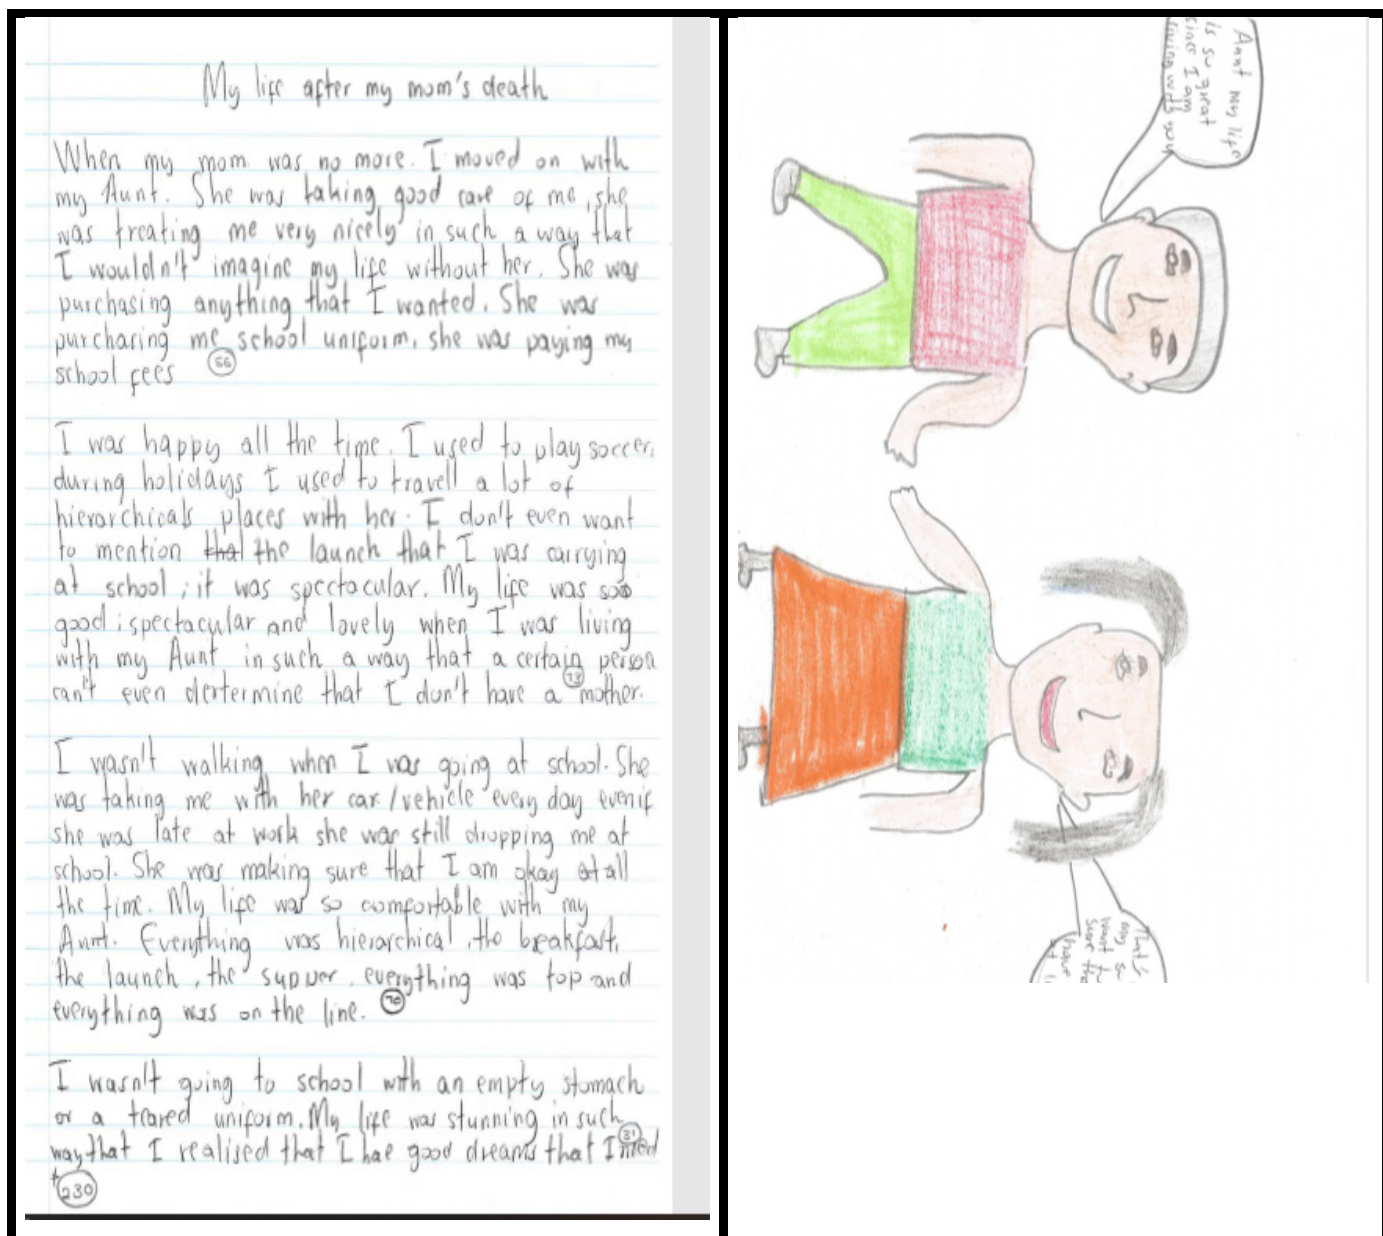 My life after my mom's death
When my mom was no more. I moved on with
my Aunt. She was taking good care of me, she
was treating me very nicely in such a way that
I wouldn't imagine my life without her. She was
purchasing anything that I wanted. She was
purchasing me school uniform, she was paying my
school fees 66
I was happy all the time. I used to play soccer,
during holidays I used to travell a lot of
hierarchicals places with her. I don't even want
to mention that the launch that I was carrying
at school, it was spectacular. My life was soo
good, spectacular and lovely when I was living
with my Aunt in such a way that a certain person
can't even dertermine that I don't have a 73 mother.
I wasn't walking when I was going at school. She
was taking me with her car/vehicle every day even if
she was late at work she was still dropping me at
school. She was making sure that I am okay at all
the time. My life was so comfortable with my
Aunt. Everything was hierarchical, the breakfast,
the launch, the supper, everything was top and
everything was on the line. 70
I wasn't going to school with an empty stomach
or a teared uniform. My life was stunning in such
way that I realised that I hae good dreams that I need
230
Aunt my life
is so great
since I am
living with you
That's
my
want